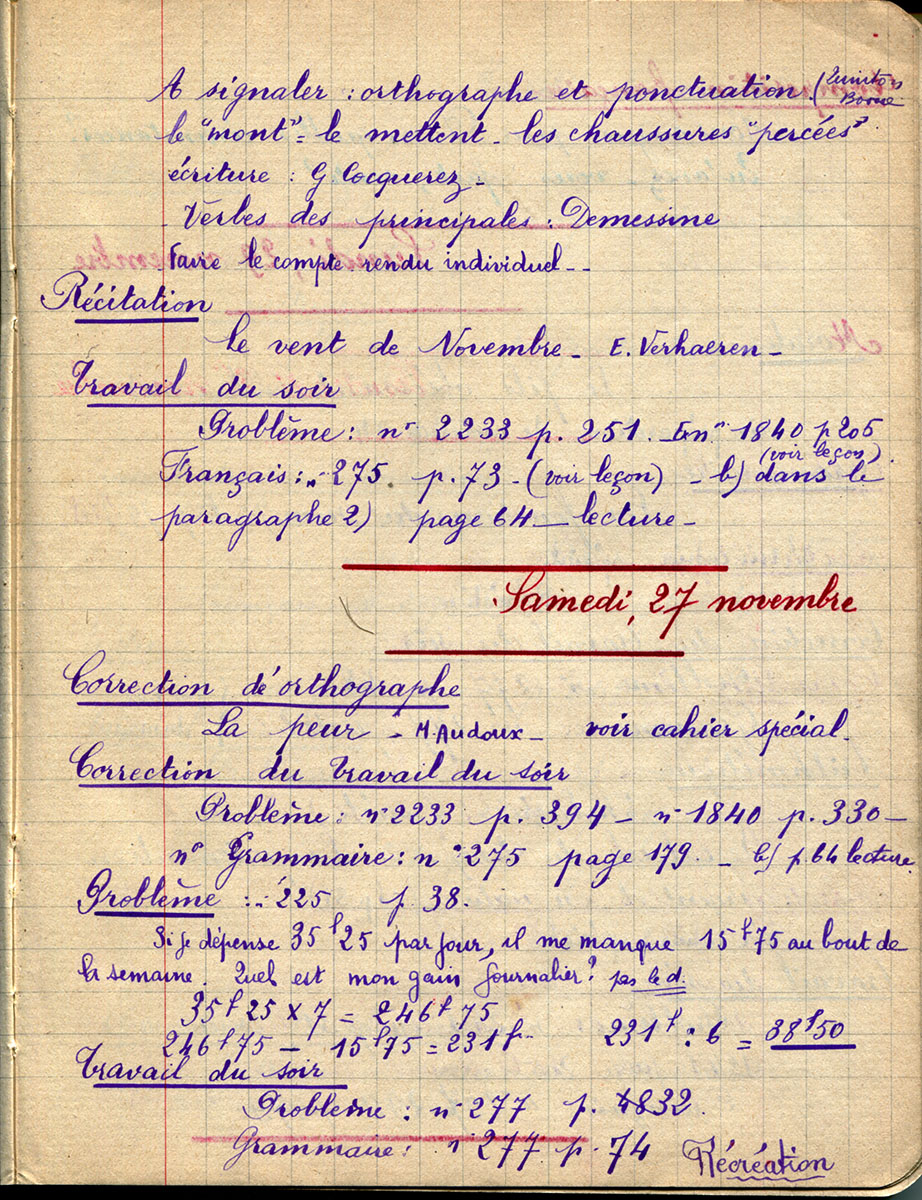 A signaler : orthographe et ponctuation (
Bovue
le "mont" = le mettent - les chaussures "percées".
écriture : G. Cocquerez -
Verbes des principales : Demessine
Faire le compte rendu individuel - -
Récitation
Le vent de Novembre - E. Verhaeren -
Travail du soir
Problème : n° 2233 p. 251. - n° 1840 p 205
(voir leçon)
Français : n° 275 p. 73 - (voir leçon) - b) dans le
paragraphe 2) page 64 - lecture -
Samedi, 27 novembre
Correction d'orthographe
La peur - M. Audoux - voir cahier spécial.
Correction du travail du soir
Problème : n° 2233 p. 394 - n° 1840 p. 330 -
n° Grammaire : n° 275 page 179 - b) p. 64 lecture
Problème : 225 p. 38.
Si je dépense 35f25 par jour, il me manque 15f75 au bout de
la semaine. Quel est mon gain journalier ? pas le d.
35f25 x 7 = 246f75
246f75 - 15f75 = 231f 231f : 6 = 38f50
Travail du soir
Problème : n° 277 p. 832.
Grammaire : n° 277 p. 74
Récréation